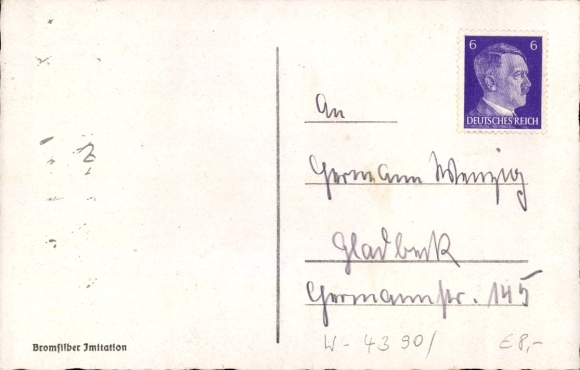 6 6
DEUTSCHES REICH
An
Hermann Wenzig
Gladbeck
Hermannstr. 145
W - 4390/ € 8,-
Bromsilber Imitation